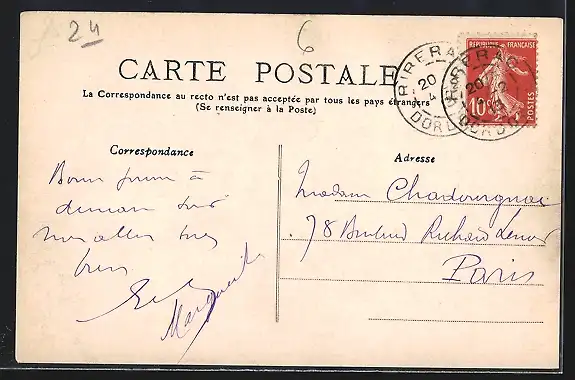 24
6
CARTE POSTALE
La Correspondance au recto n'est pas acceptée par tous les pays étrangers
(Se renseigner à la Poste)
RIBERAC
20
DORD
RIBERAC
20
DORDO
REPUBLIQUE FRANÇAISE
10
POSTES
Correspondance
à
demain soir
nous allons tres
bien
Marguerite
Adresse
Madame
78 Boulevard Richard Lenoir
Paris